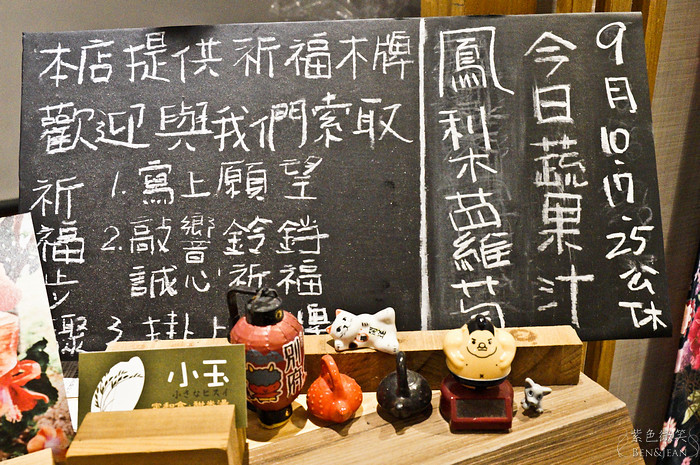 本店提供祈福木牌
歡迎與我們索取
祈福步驟
1. 寫上願望
2. 敲響鈴鐺
誠心祈福
3. 掛上
9月10.17.25公休
今日蔬果汁
鳳梨芭蘿
小玉
別府
紫色微笑
BEN&JEAN